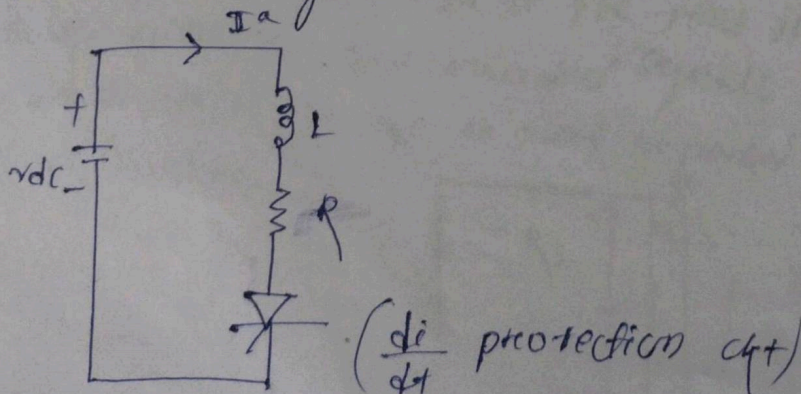 Ia
+
L
vdc -
R
(di/dt protection ckt)